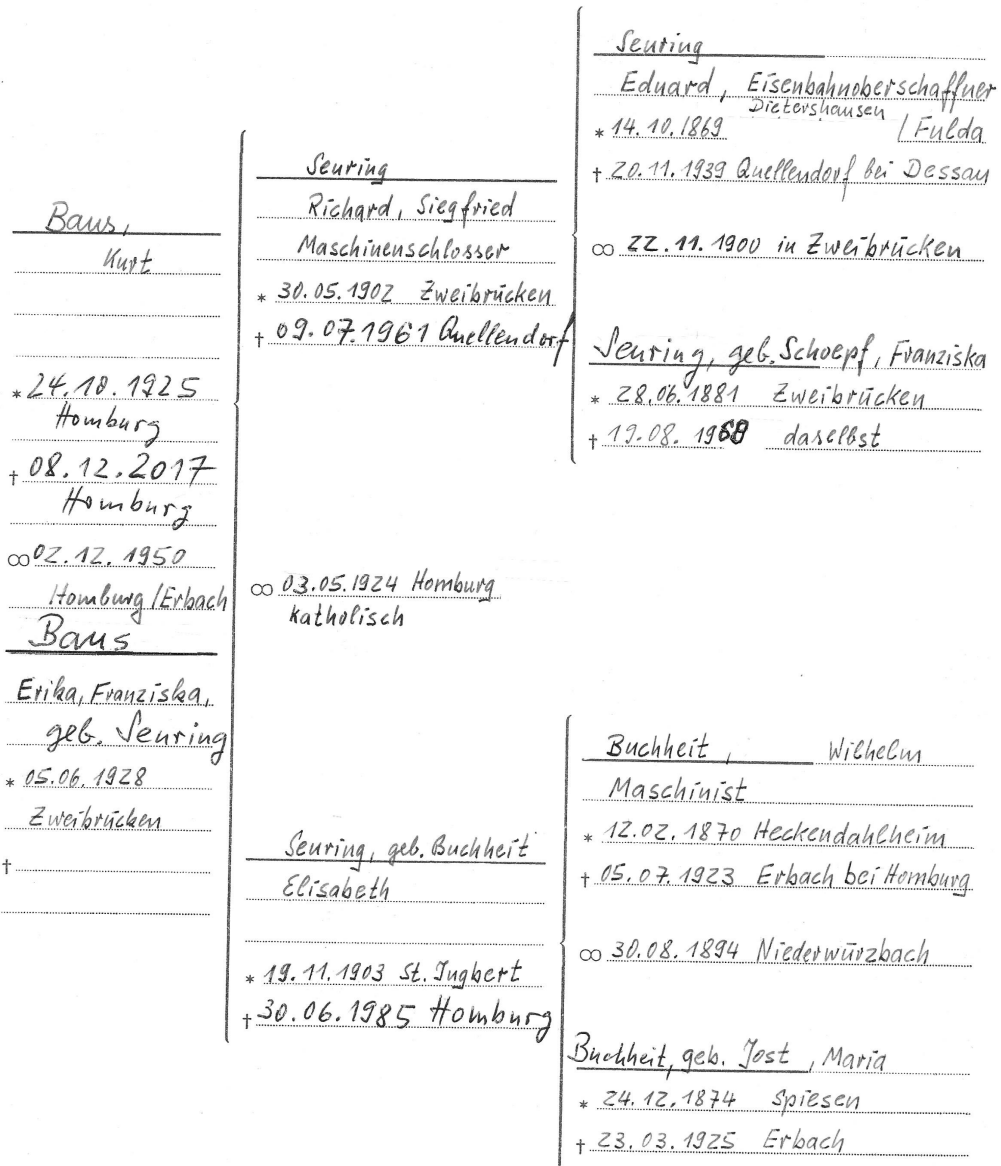 Baus,
Kurt
* 24.10.1925
Homburg
† 08.12.2017
Homburg
∞ 02.12.1950
Homburg/Erbach
Baus
Erika, Franziska,
geb. Seuring
* 05.06.1928
Zweibrücken
†
Seuring
Richard, Siegfried
Maschinenschlosser
* 30.05.1902 Zweibrücken
† 09.07.1961 Quellendorf
∞ 03.05.1924 Homburg
katholisch
Seuring, geb. Buchheit
Elisabeth
* 19.11.1903 St. Ingbert
† 30.06.1985 Homburg
Seuring
Eduard, Eisenbahnoberschaffner
Dietershausen
* 14.10.1869 /Fulda
† 20.11.1939 Quellendorf bei Dessau
∞ 22.11.1900 in Zweibrücken
Seuring, geb. Schoepf, Franziska
* 28.06.1881 Zweibrücken
† 19.08. daselbst
Buchheit, Wilhelm
Maschinist
* 12.02.1870 Heckendahlheim
† 05.07.1923 Erbach bei Homburg
∞ 30.08.1894 Niederwürzbach
Buchheit, geb. Jost, Maria
* 24.12.1874 Spiesen
† 23.03.1925 Erbach